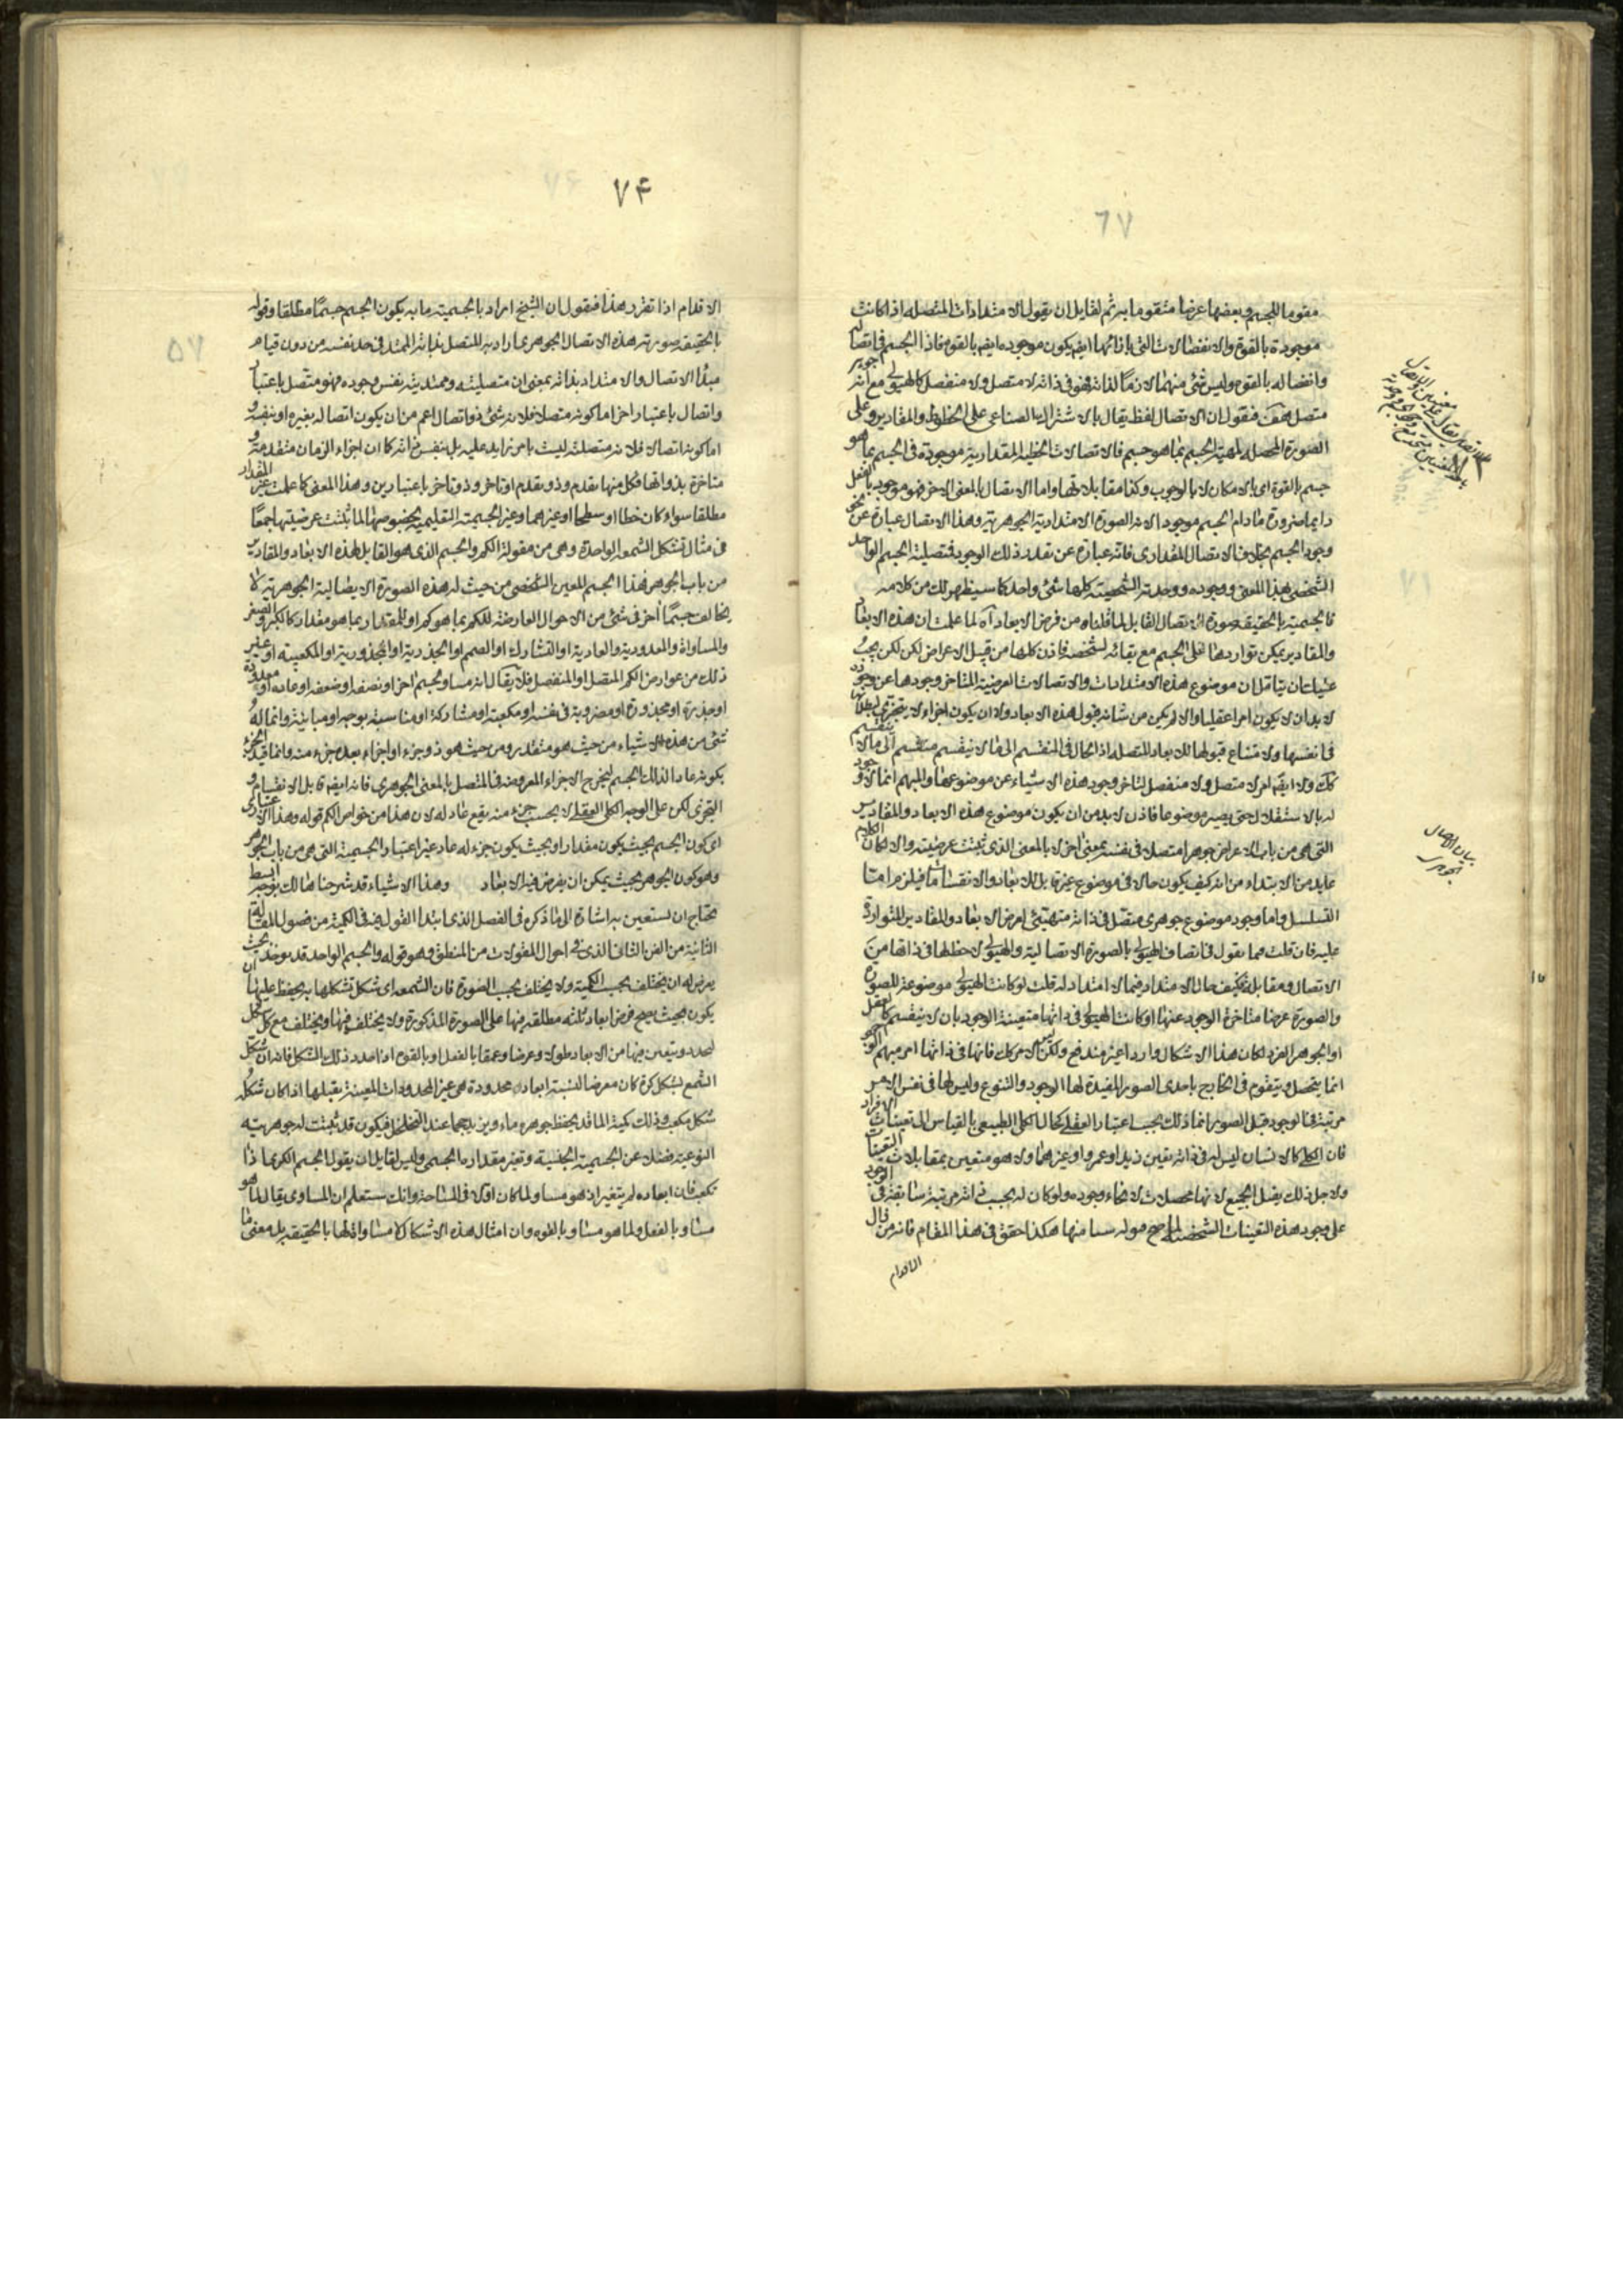 ٦٧
مقوما للجسم وبعضها عرضا متقوما به ثم لقايل ان يقول الامتدادات المتصله اذا كانت
موجودة بالقوة والانفصالات التي بازائها ايضا يكون موجوده ايضا بالقوه فاذا الجسم في اتصاله
وانفصاله بالقوه وليس شئ منهما لازما لذاته فهو في ذاته لا متصل ولا منفصل كالهيولى مع انه جوهر
متصل هف فنقول ان الاتصال لفظ يقال بالاشتراك الصناعي على الخطوط والمقادير وعلى
الصورة المحصله لمهية الجسم بما هو جسم فالاتصالات الخطية المقدارية موجودة في الجسم بما هو
جسم بالقوة اى بالامكان لا بالوجوب وكذا مقابلاتها واما الاتصال بالمعنى الاخر فهو موجود بالفعل
دايما ضرورة مادام الجسم موجود الانه الصورة الامتدادية الجوهرية وهذا الاتصال عبارة عن نحو
وجود الجسم بخلاف الاتصال المقدارى فانه عبارة عن تقدر ذلك الوجود فمتصلية الجسم الواحد
الشخصى بهذا المعنى ووجوده ووحدته الشخصية كلها شئ واحد كما سيظهر لك من كلامه
فالجسمية بالحقيقة صورة الاتصال القابل لما قلناه من فرض الابعاد آه لما علمت ان هذه الابعاد
والمقادير يمكن تواردها على الجسم مع بقائه لشخصه فاذن كلها من قبيل الاعراض لكن يجب
عليك ان يتامل ان موضوع هذه الامتدادات والاتصالات العرضية المتاخر وجودها عن وجوده
لا بد ان لا يكون امرا عقليا والا لم يكن من شانه قبول هذه الابعاد ولا ان يكون اجزاء لا يتجزى لبطلانها
في انفسها ولامتناع قبولها تلك الابعاد المتصله اذ الحال في المنقسم الى ما لا ينقسم منقسم الى ما لا ينقسم
كك ولا ايضا امر لا متصل ولا منفصل لتاخر وجود هذه الاشياء عن موضوعها والمبهم انما لا وجود
له بالاستقلال حتى يصير موضوعا فاذن لا بد من ان يكون موضوع هذه الابعاد والمقادير
التي هي من باب الاعراض جوهرا متصلا في نفسه بمعنى اخر لا بالمعنى الذى ثبتت عرضيته والا لكان الكلام
عايد من الابتداء من انه كيف يكون حالا في موضوع غير قابل للابعاد والانقسامات فيلزم اما
التسلسل واما وجود موضوع جوهرى متصل في ذاته متهيئ لعرض الابعاد والمقادير المتواردة
عليه فان قلت فما تقول في اتصاف الهيولى بالصورة الاتصالية والهيولى لا حظ لها في ذاتها من
الاتصال ومقابله فكيف حال الامتداد فيما لا امتداد له قلت لو كانت الهيولى موضوعة للصورة
والصورة عرضا متاخرة الوجود عنها او كانت الهيولى في ذاتها متعينة الوجود بان لا ينقسم كالعقل
او الجوهر الفرد لكان هذا الاشكال واردا غير مندفع ولكن ليس الامر كك فانها في ذاتها امر مبهم الوجود
انما يتحصل ويتقوم في الخارج باحدى الصور المفيدة لها الوجود والتنوع وليس لها في نفس الامر
مرتبة في الوجود قبل الصور انما ذلك بحسب اعتبار العقل كحال الكلى الطبيعي بالقياس الى تعينات الافراد
فان الكلى كالانسان ليس له في ذاته تعين زيد او عمرو او غيرهما ولا هو متعين بمقابلات التعينات
ولاجل ذلك يقبل الجميع لانها محصلات لانحاء وجوده ولو كان له بحسب ذاته مرتبة سابقة في الوجود
على وجود هذه التعينات الشخصية لما صح قبوله شيئا منها هكذا حقق في هذا المقام فانه من مزال
الاقدام
بيان الاتصال الجوهرى
٧۴
٥٧
الاقدام اذا تقرر هذا فنقول ان الشيخ اراد بالجسمية ما به يكون الجسم جسمًا مطلقا وقوله
بالحقيقة صورته هذه الاتصال الجوهرى اراد به المتصل بذاته الممتد في حد نفسه من دون قيام
مبدا الاتصال والامتداد بذاته بمعنى ان متصليته وممتديته نفس وجوده فهو متصل باعتبار
واتصال باعتبار اخر اما كونه متصلا فلانه شئ ذو اتصال اعم من ان يكون اتصاله بغيره او بنفسه و
اما كونه اتصالا فلانه متصليته ليست بامر زايد عليه بل بنفس ذاته كما ان اجزاء الزمان متقدمة و
متاخرة بذواتها فكل منها تقدم وذو تقدم او تاخر وذو تاخر باعتبارين وهذا المعنى كما علمت غير المقدار
مطلقا سواء كان خطا او سطحا او غيرهما وغير الجسمية التعليمية بخصوصها لما ثبتت عرضيتها جمعًا
في مثال تشكل الشمعه الواحدة وهى من مقولة الكم والجسم الذى هو القابل لهذه الابعاد والمقادير
من باب الجوهر فهذا الجسم المعين الشخصى من حيث له هذه الصورة الاتصالية الجوهرية لا
يخالف جسمًا اخر في شئ من الاحوال العارضة للكم بما هو كم او للمقدار بما هو مقدار كالكبر والصغر
والمساواة والمعدودية والعادية او التشارك او الصمم او الجذرية او المجذورية او المكعبية او غير
ذلك من عوارض الكم المتصل او المنفصل فلا يقال انه مساو لجسم اخر او نصفه او ضعفه او عاده او معدوده
او جذره او مجذوره او مضروبة في نفسه او مكعبه او مشاركه او مناسبة بوجه او مباينة وانما له
شئ من هذه الاشياء من حيث هو متقدر ومن حيث هو ذو جزء او اجزاء يعده جزء منه وانما قيد الجزء
بكونه عادا لذلك الجسم ليخرج الاجزاء المعروضه في المتصل بالمعنى الجوهرى فانه ايضا قابل الانقسام و
التجزى لكن على الوجه الكلى العقلى لا بحسب جزء منه يقع عاد له لان هذا من خواص الكم قوله وهذا الاعتبار
اى كون الجسم بحيث يكون مقدار او بحيث يكون جزء له عاد غير اعتبار الجسمية التي هي من باب الجوهر
وهو كون الجوهر بحيث يمكن ان يفرض فيه الابعاد وهذا الاشياء قد شرحناها لك بوجه ابسط
يحتاج ان تستعين به اشارة الى ما ذكره في الفصل الذى ابتدا القول فيه في الكمية من فصول المقالة
الثانية من الفن الثاني الذى في احوال المقولات من المنطق وهو قوله والجسم الواحد قد يوخذ بحيث
يعرض له ان يختلف بحسب الكمية ولا يختلف بحسب الصورة فان الشمعه اى شكل تشكلها به يحفظ عليها ان
يكون بحيث يصح فرض ابعاد ثلثه مطلقه فيها على الصورة المذكورة ولا يختلف فيها ويختلف مع كل شكل
تحدد ويتعين فيها من الابعاد طولا وعرضا وعمقا بالفعل او بالقوه اذا حدد ذلك الشكل فانه ان شكل
الشمع بشكل كرة كان معرضا لنسبة ابعاده محدودة هي غير المحدودات المعينة يقبلها اذا كان شكله
شكل مكعب وذلك كمية الماء قد يحفظ جوهره ماء ويزيد حجما عند التخلخل فيكون قد ثبتت له جوهريته
النوعية فضلا عن الجسمية الجنسية وتغير مقداره الجسمى وليس لقايل ان يقول الجسم الكرى اذا
تكعب فان ابعاده لم يتغير اذ هو مساو لما كان اولا في المساحة وانك ستعلم ان المساوى يقال لما هو
مساو بالفعل ولما هو مساو بالقوه وان امثال هذه الاشكال لا مساواة لها بالحقيقة بل معنى ما